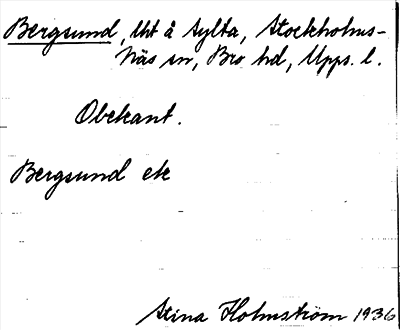 Bergsund, lht å Sylta, Stockholms-
Näs sn, Bro hd, Upps. l.
Obekant.
Bergsund ek
Stina Holmström 1936